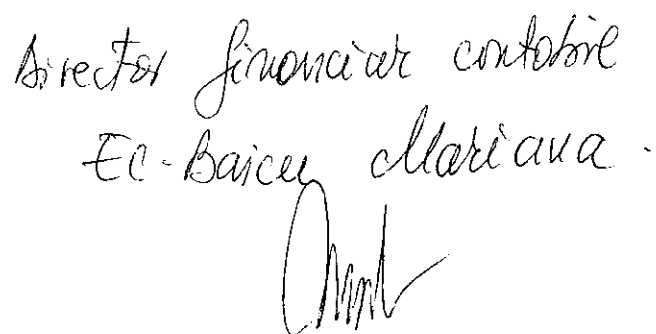 Director financiar contabil
Ec. Baicu Mariana.